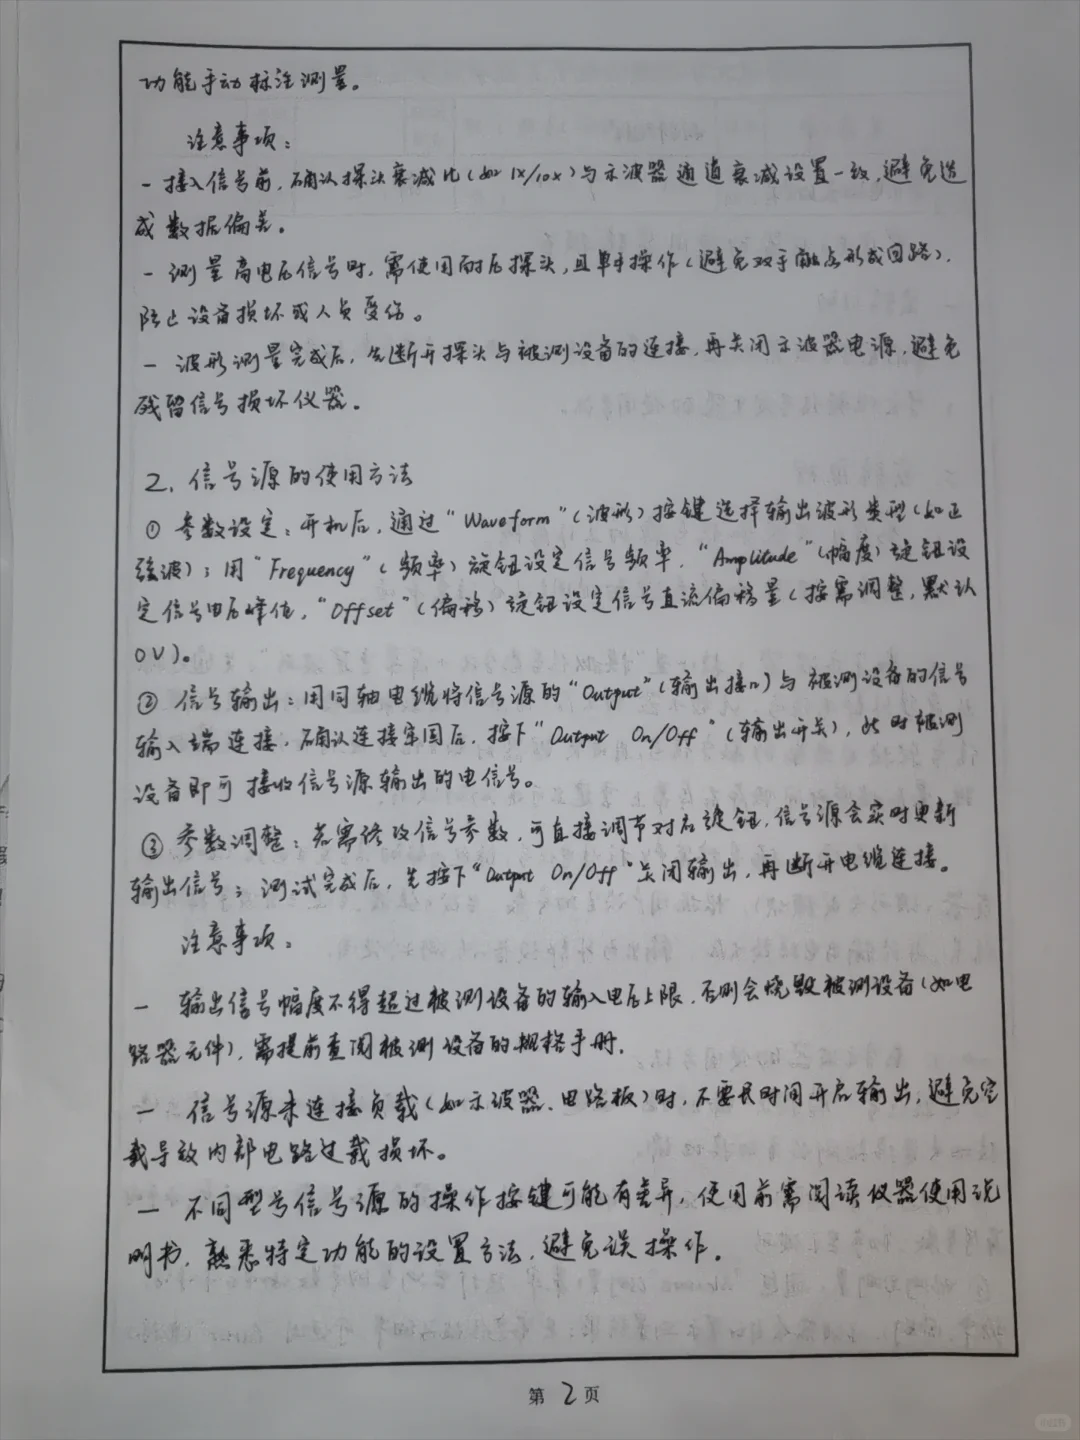 功能手动标注测量。
注意事项：
- 接入信号前，确认探头衰减比(如1X/10X)与示波器通道衰减设置一致，避免造
成数据偏差。
- 测量高电压信号时，需使用耐压探头，且单手操作(避免双手触点形成回路)，
防止设备损坏或人员受伤。
- 波形测量完成后，先断开探头与被测设备的连接，再关闭示波器电源，避免
残留信号损坏仪器。
2. 信号源的使用方法
① 参数设定：开机后，通过“Waveform”(波形)按键选择输出波形类型(如正
弦波)；用“Frequency”(频率)旋钮设定信号频率，“Amplitude”(幅度)旋钮设
定信号电压峰值，“Offset”(偏移)旋钮设定信号直流偏移量(按需调整，默认
0V)。
② 信号输出：用同轴电缆将信号源的“Output”(输出接口)与被测设备的信号
输入端连接，确认连接牢固后，按下“Output On/Off”(输出开关)，此时被测
设备即可接收信号源输出的电信号。
③ 参数调整：若需修改信号参数，可直接调节对应旋钮，信号源会实时更新
输出信号；测试完成后，先按下“Output On/Off”关闭输出，再断开电缆连接。
注意事项：
- 输出信号幅度不得超过被测设备的输入电压上限，否则会烧毁被测设备(如电
路器元件)，需提前查阅被测设备的规格手册.
- 信号源未连接负载(如示波器、电路板)时，不要长时间开启输出，避免空
载导致内部电路过载损坏。
- 不同型号信号源的操作按键可能有差异，使用前需阅读仪器使用说
明书，熟悉特定功能的设置方法，避免误操作。
第2页